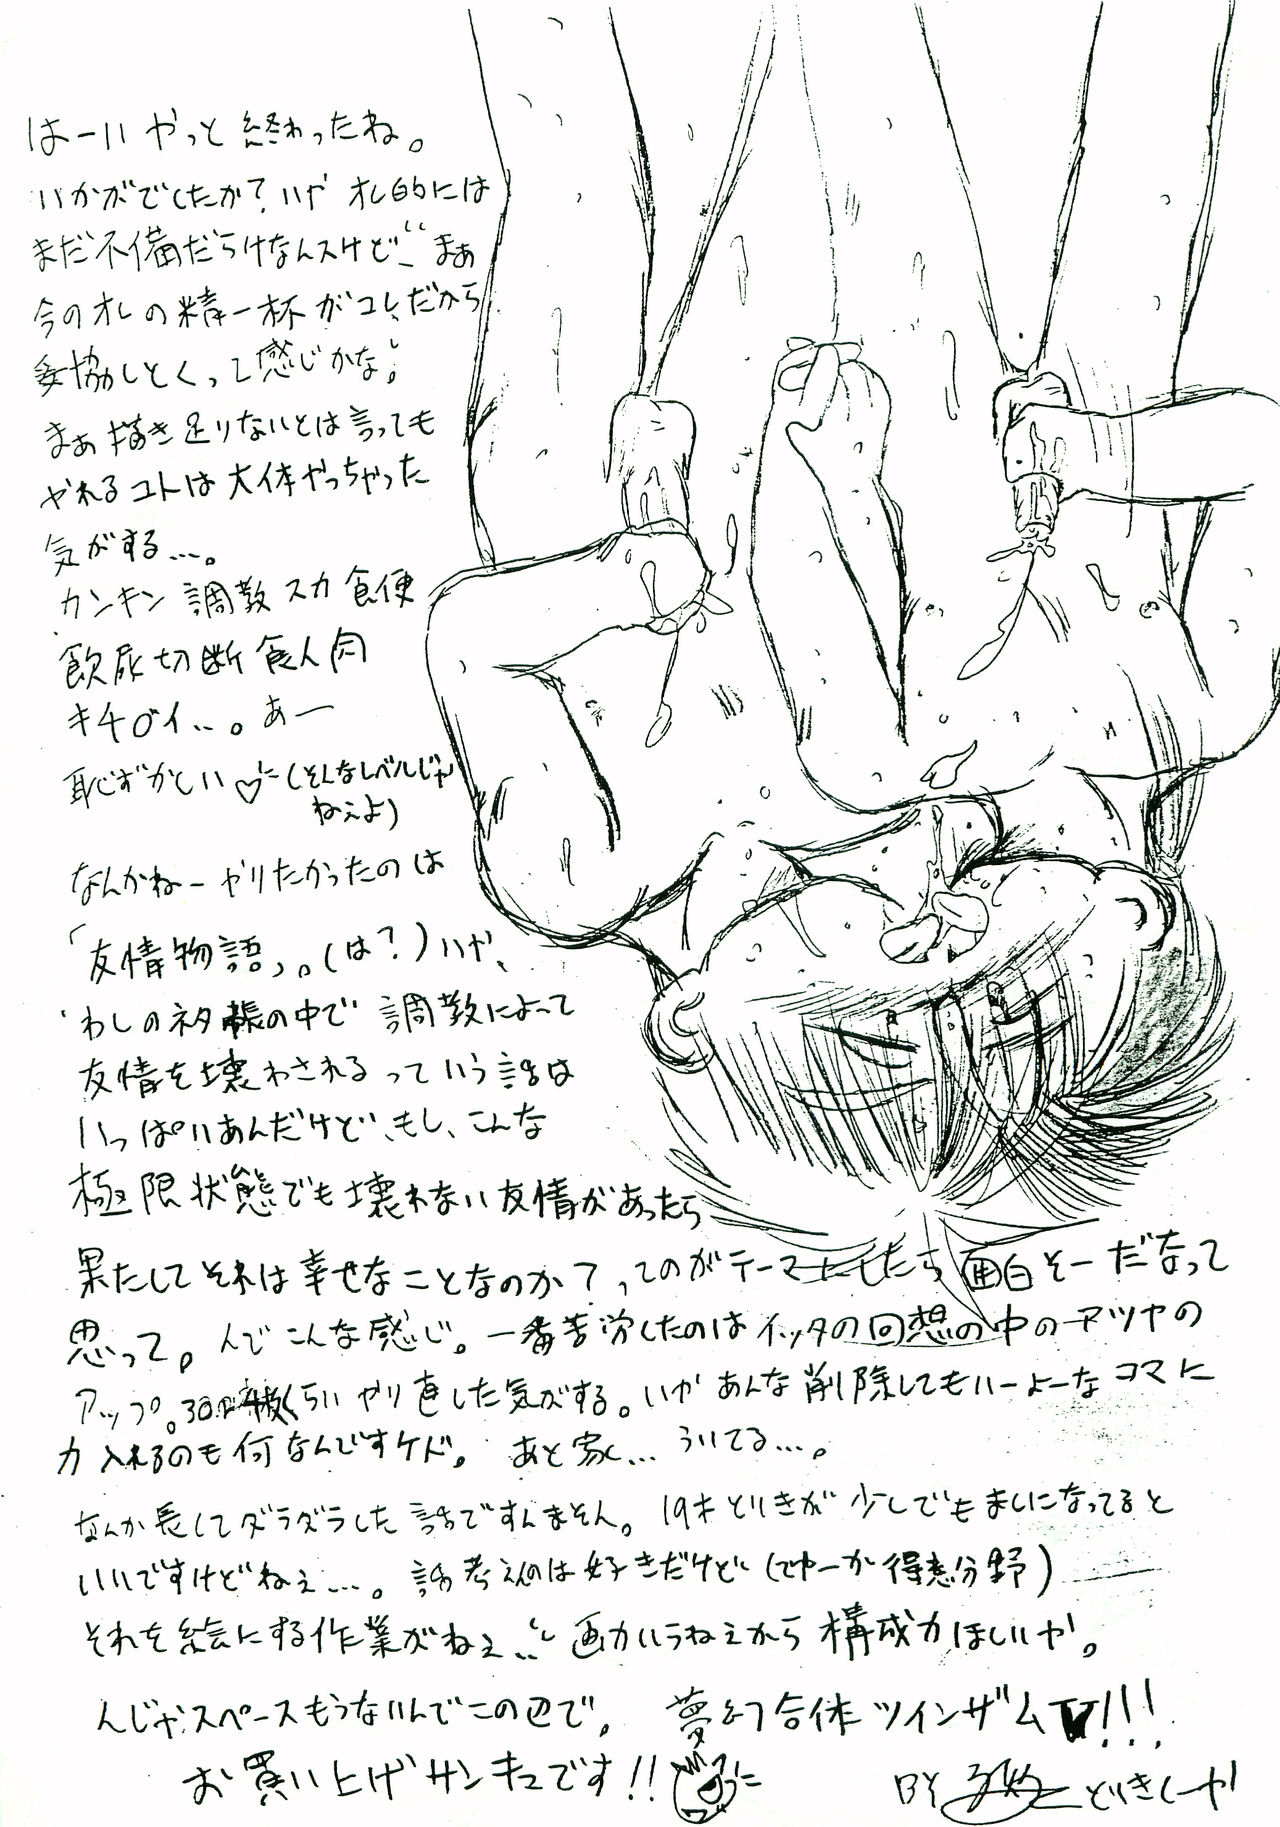 はーい やっと 終わったね。
いかがでしたか？いや オレ的には
まだ不備だらけなんスけど まぁ
今のオレの精一杯がコレだから
妥協しとくって感じかな。
まぁ描き足りないとは言っても
やれるコトは大体やっちゃった
気がする…。
カンキン 調教 スカ 食便
飲尿 切断 食人肉
キチ〇イ…。あー
恥ずかしい♡（そんなレベルじゃ
ねぇよ）
なんかねーやりたかったのは
「友情物語」。（は？）いや、
わしのネタ帳の中で 調教によって
友情を壊わされるっていう話は
いっぱいあんだけど、もし、こんな
極限状態でも壊れない友情があったら
果たしてそれは幸せなことなのか？ってのがテーマにしたら面白そーだなって
思って。んでこんな感じ。一番苦労したのはイッタの回想の中のアツヤの
アップ。30枚くらいやり直した気がする。いや あんな削除してもいーよーなコマに
力入れるのも何なんですケド。あと家… ういてる…。
なんか長くてダラダラした話ですんまそん。19才どいきが少しでもましになってると
いいですけどねぇ…。話考えんのは好きだけど（てゆーか得意分野）
それを絵にする作業がねぇ… 画力いらねえから構成力ほしいや。
んじゃスペースもうないんでこの辺で。 夢幻合体ツインザムV!!!
お買い上げサンキューです!!
BY どいきしーや